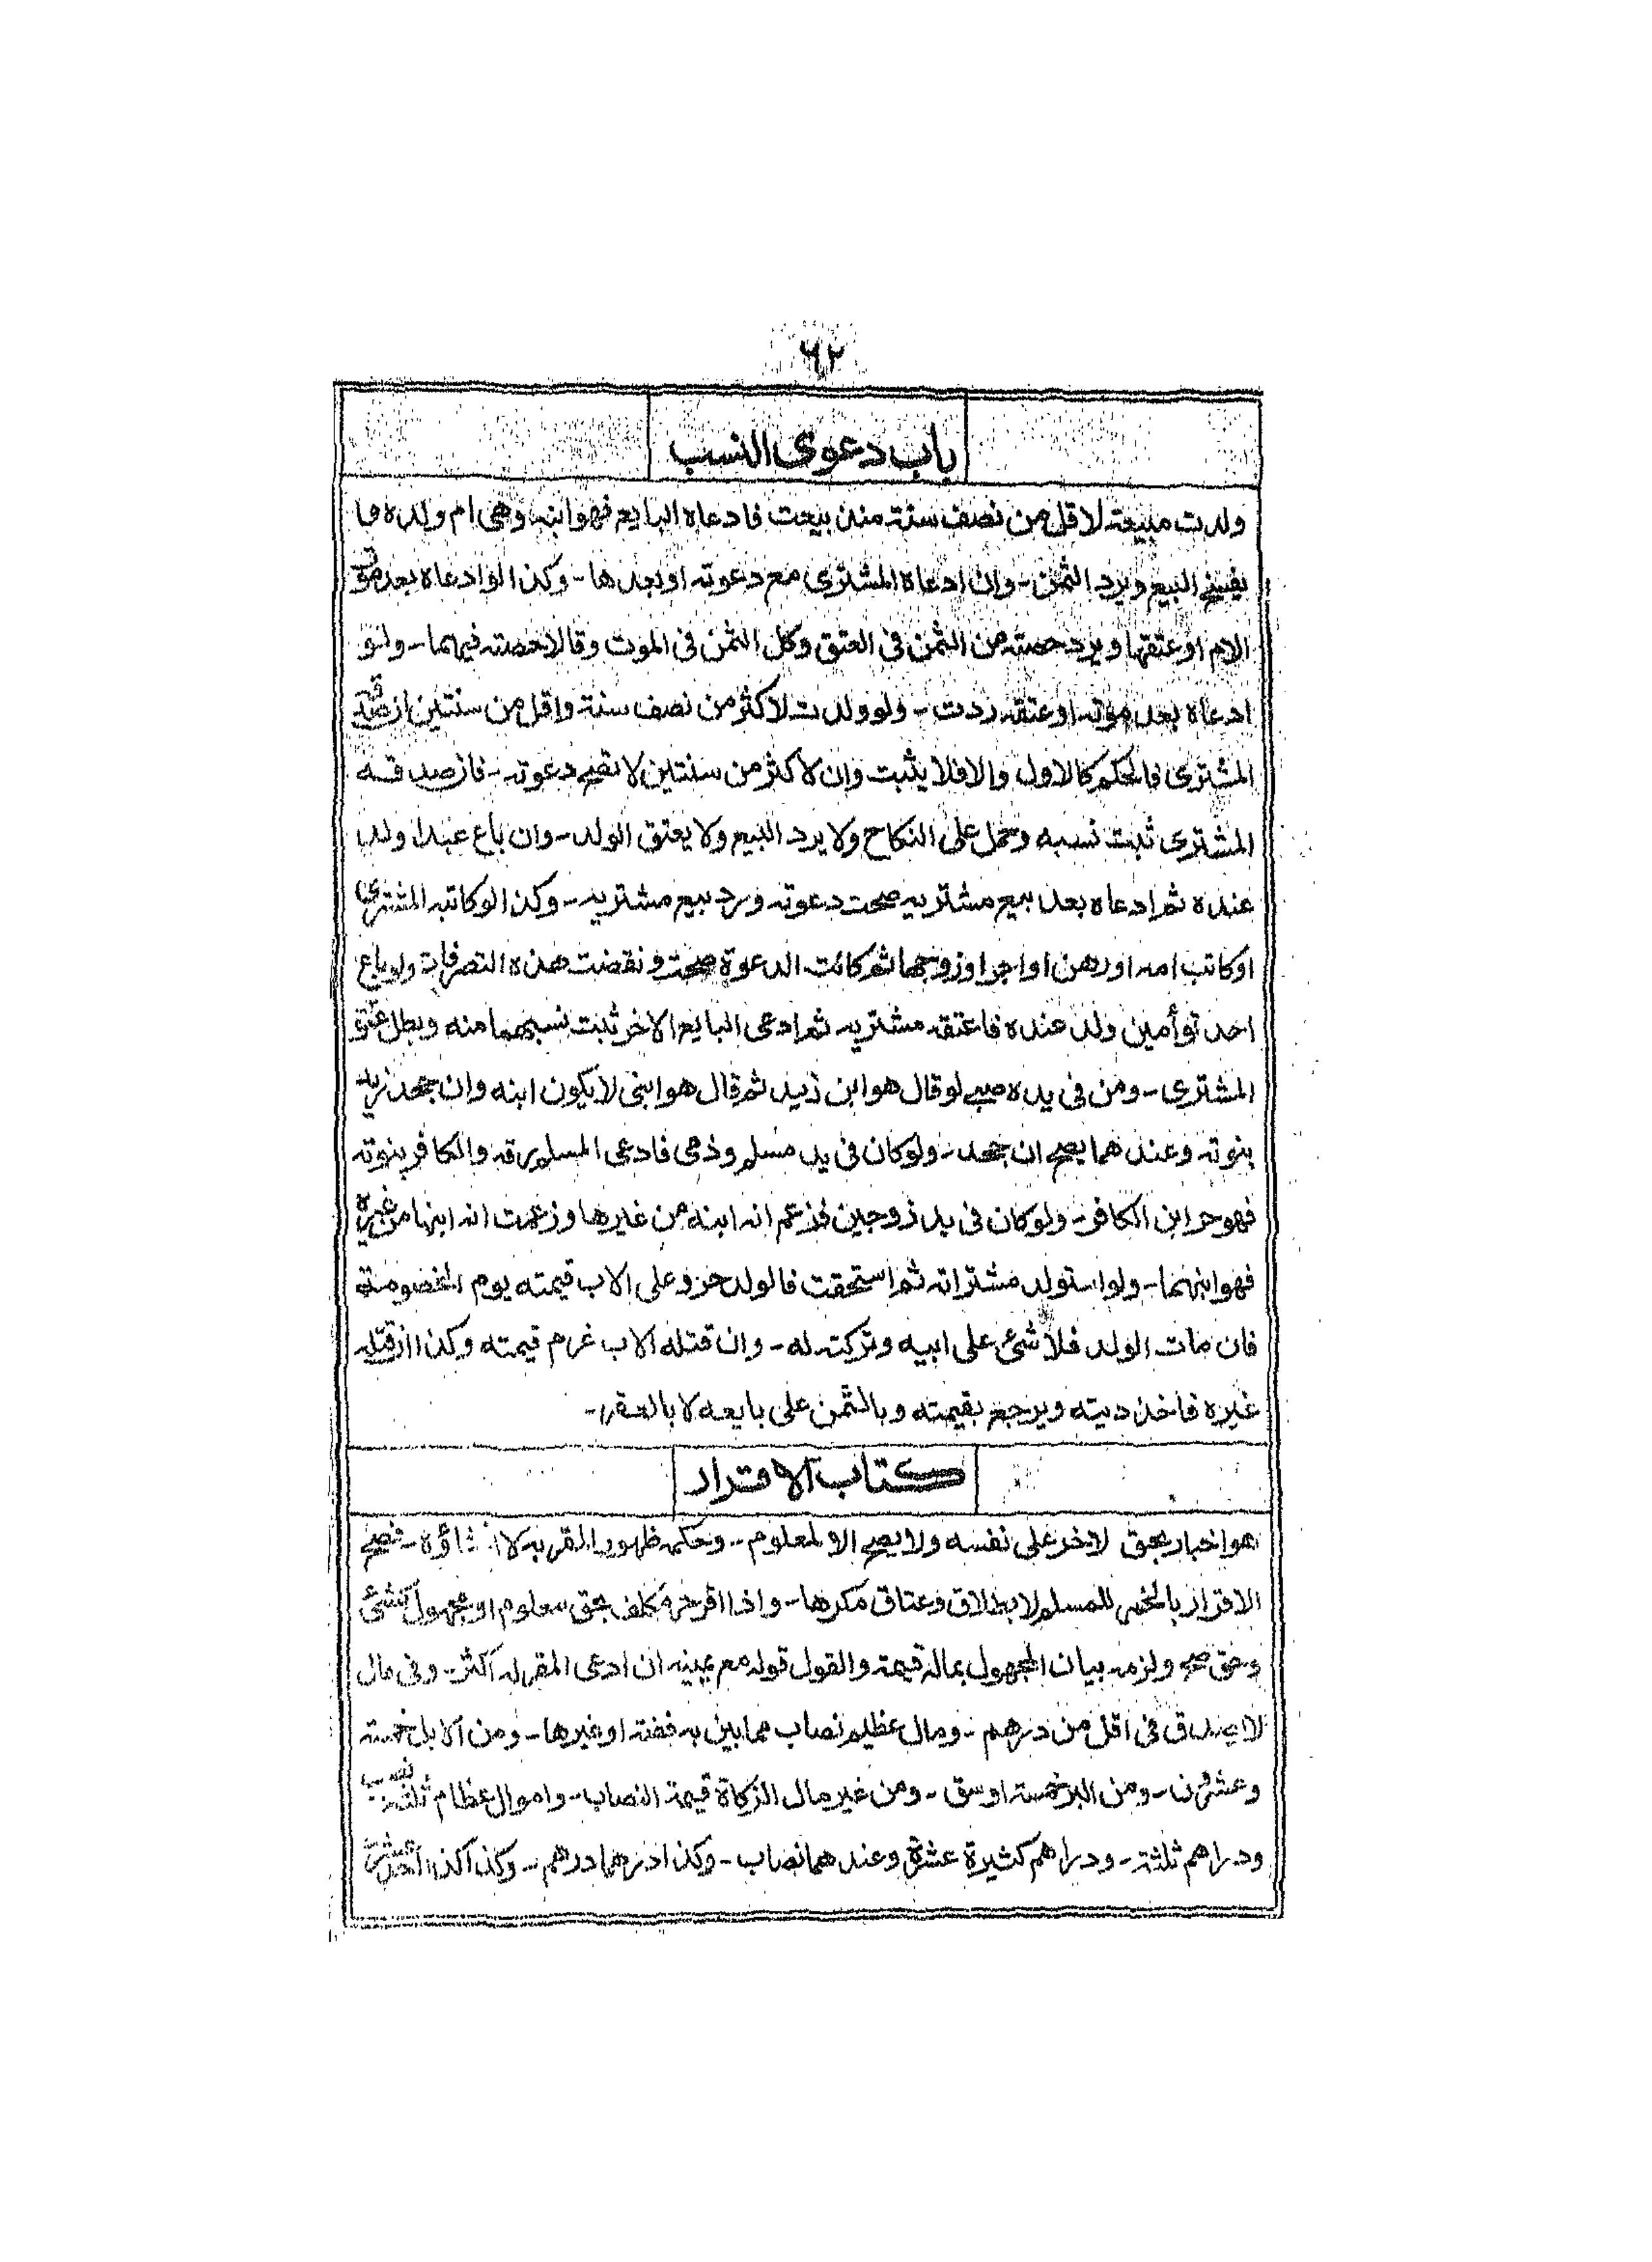 ٦٢
باب دعوى النسب
ولدت مبيعة لاقل من نصف سنة منذ بيعت فادعاه البايع فهو ابنه وهى ام ولده فا
يفسخ البيع ويرد الثمن - وان ادعاه المشترى مع دعوته او بعدها - وكذا لو ادعاه بعد موت
الام او عتقها ويرد حصته من الثمن فى العتق وكل الثمن فى الموت وقالا حصته فيهما - ولو
ادعاه بعد موته او عتقه ردت - ولو ولدت لاكثر من نصف سنة واقل من سنتين ان صدقه
المشترى فالحكم كالاول والا فلا يثبت وان لاكثر من سنتين لا تصح دعوته - فان صدقه
المشترى ثبت نسبه وحمل على النكاح ولا يرد البيع ولا يعتق الولد - وان باع عبدا ولد
عنده ثم ادعاه بعد بيع مشتريه صحت دعوته ورد بيع مشتريه - وكذا لو كاتبه المشترى
او كاتب امه او رهن او اجر او زوجها ثم كانت الدعوة صحت ونقضت هذه التصرفات ولو باع
احد توأمين ولد عنده فاعتقه مشتريه ثم ادعى البايع الاخر ثبت نسبهما منه وبطل عتق
المشترى - ومن فى يده صبى لو قال هو ابن زيد ثم قال هو ابنى لا يكون ابنه وان جحد زيد
بنوته وعندهما يصح ان جحد - ولو كان فى يد مسلم وذمى فادعى المسلم رقه والكافر بنوته
فهو حر ابن الكافر - ولو كان فى يد زوجين فزعم انه ابنه من غيرها وزعمت انه ابنها من غيره
فهو ابنهما - ولو استولد مشتراته ثم استحقت فالولد حر وعلى الاب قيمته يوم الخصومة
فان مات الولد فلا شئ على ابيه وتركته له - وان قتله الاب غرم قيمته وكذا ان قتله
غيره فاخذ ديته ويرجع بقيمته وبالثمن على بايعه لا بالعقر -
كتاب الاقرار
هو اخبار بحق لاخر على نفسه ولا يصح الا لمعلوم - وحكمه ظهور المقر به لا انشاؤه - فصح
الاقرار بالخمر للمسلم لا بطلاق وعتاق مكرها - واذا اقر حر مكلف بحق معلوم او مجهول كشئ
وحق صح ولزمه بيان المجهول بماله قيمة والقول قوله مع يمينه ان ادعى المقر له اكثر - وفى مال
لا يصدق فى اقل من درهم - ومال عظيم نصاب مما بين به فضة او غيرها - ومن الابل خمسة
وعشرون - ومن البر خمسة اوسق - ومن غير مال الزكاة قيمة النصاب - واموال عظام ثلثة نصب
ودراهم ثلثة - ودراهم كثيرة عشرة وعندهما نصاب - وكذا درهما درهم - وكذا كذا احد عشر